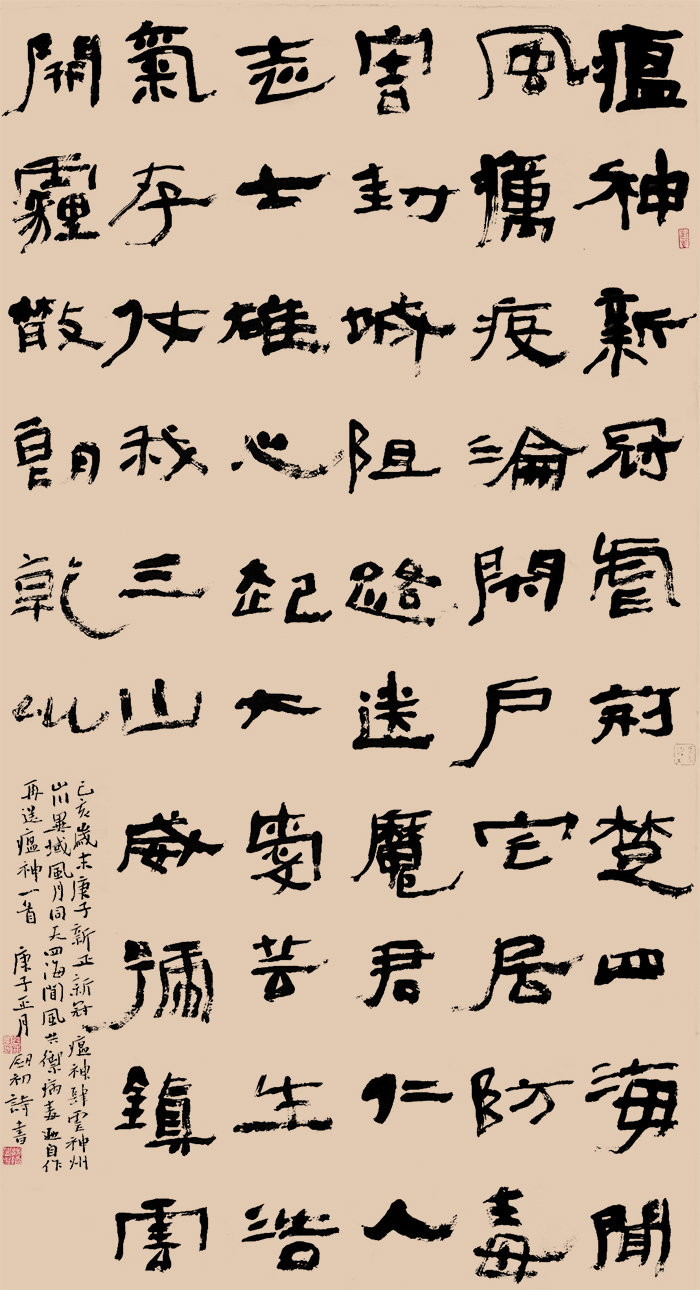 瘟神新冠虐荊楚四海聞
風癘疫淪閉戶宅居防毒
害封城阻路送魔君仁人
志士雄心起大愛芸生浩
氣存仗我三山威號鎮雲
開霾散朗乾坤
己亥歲末庚子新正新冠瘟神肆虐神州
山川異域風月同天四海聞風共禦病毒自作
再送瘟神一首 庚子正月初詩書